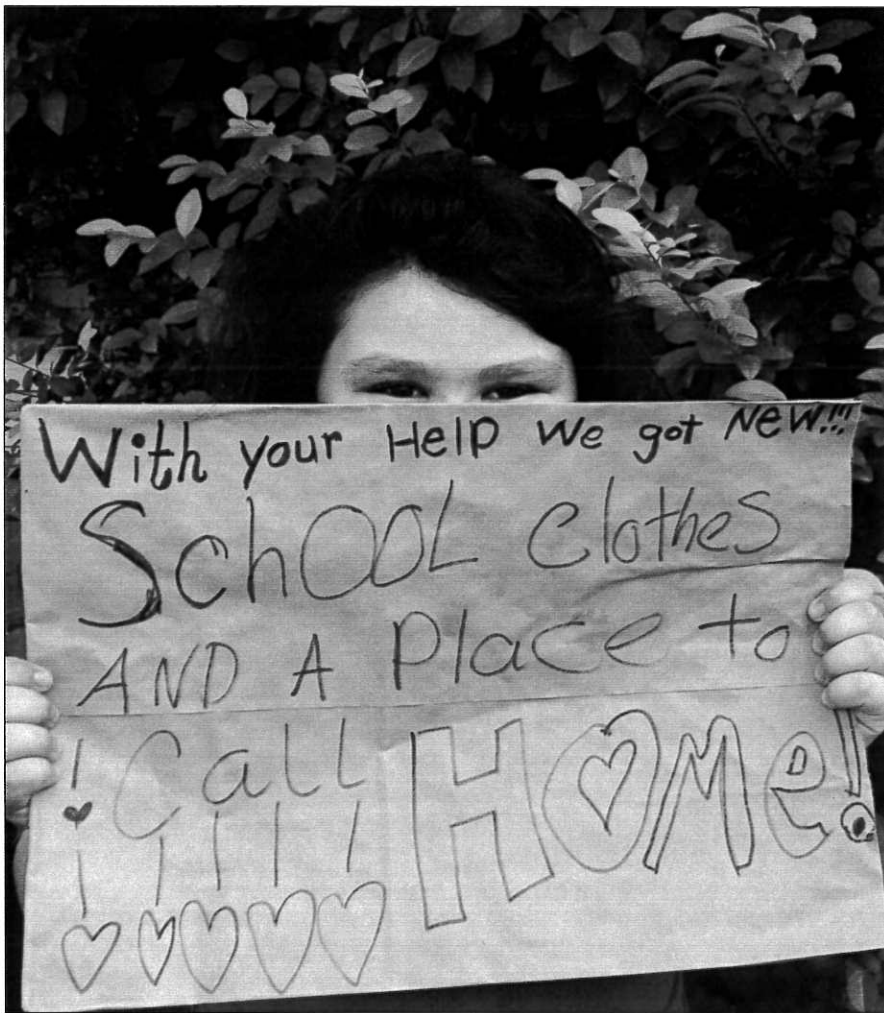 With your Help We got New!!!
SchOOL clothes
AND A Place to
! Call HOMe!
! ! ! ! !